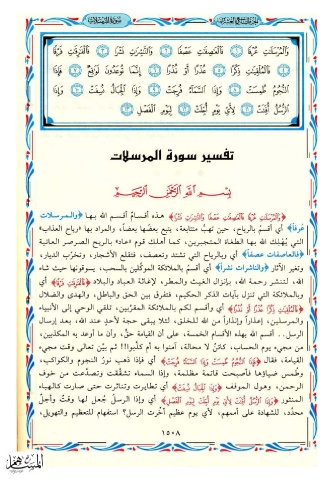 وَالْمُرْسَلَاتِ عُرْفًا ۝١ فَالْعَاصِفَاتِ عَصْفًا ۝٢ وَالنَّاشِرَاتِ نَشْرًا ۝٣ فَالْفَارِقَاتِ فَرْقًا
۝٤ فَالْمُلْقِيَاتِ ذِكْرًا ۝٥ عُذْرًا أَوْ نُذْرًا ۝٦ إِنَّمَا تُوعَدُونَ لَوَاقِعٌ ۝٧ فَإِذَا
النُّجُومُ طُمِسَتْ ۝٨ وَإِذَا السَّمَاءُ فُرِجَتْ ۝٩ وَإِذَا الْجِبَالُ نُسِفَتْ ۝١٠ وَإِذَا
الرُّسُلُ أُقِّتَتْ ۝١١ لِأَيِّ يَوْمٍ أُجِّلَتْ ۝١٢ لِيَوْمِ الْفَصْلِ ۝١٣
تفسير سورة المرسلات
بِسْمِ اللَّهِ الرَّحْمَٰنِ الرَّحِيمِ
﴿وَالْمُرْسَلَاتِ عُرْفًا فَالْعَاصِفَاتِ عَصْفًا وَالنَّاشِرَاتِ نَشْرًا﴾ هذه أقسامٌ أقسم الله بها ﴿والمرسلات
عُرفاً﴾ أي أقسمُ بالرياح، حين تهبُّ متتابعة، يتبع بعضها بعضاً، والمراد بها «رياح العذاب»
التي يُهْلِك الله بها الطغاة المتجبرين، كما أهلك قوم «عاد» بالريح الصرصر العاتية
﴿فالعاصفات عصفاً﴾ أي وأقسمُ بالرياح التي تشتد وتعصف، فتقلع الأشجار، وتخرِّب الديار،
وتغير الآثار ﴿والناشرات نشراً﴾ أي أقسمُ بالملائكة الموكَّلين بالسحب، يسوقونها حيث شاء
الله، لتنشر رحمة الله، بإنزال الغيث والمطر، لإغاثة العباد والبلاد ﴿فَالْفَارِقَاتِ فَرْقًا﴾ أي
وبالملائكة التي تنزل بآيات الذكر الحكيم، فتفرق بين الحق والباطل، والهدى والضلال
﴿فَالْمُلْقِيَاتِ ذِكْرًا عُذْرًا أَوْ نُذْرًا﴾ أي وأقسم لكم بالملائكة المقربين، تلقي الوحي إلى الأنبياء
والمرسلين، إعذاراً وإنذاراً من الله للخلق، لئلا يبقى حجة لأحدٍ عند الله، بعد إرسال
الرسل.. أقسم الله بهذه الأقسام الخمسة، على أن القيامة حقٌّ، وأن ما أوعد به المكذبين،
من مجيء يوم الحساب، كائنٌ لا محالة، آمنوا به أم كذَّبوا!! ثم بيَّن تعالى وقت مجيء
القيامة، فقال ﴿فَإِذَا النُّجُومُ طُمِسَتْ وَإِذَا السَّمَاءُ فُرِجَتْ﴾ أي فإذا ذهب نورُ النجوم والكواكب،
وطُمس ضياؤها فأصبحت قاتمة مظلمة، وإذا السماء تشققت وتصدَّعت من خوف
الرحمن، وهول الموقف ﴿وَإِذَا الْجِبَالُ نُسِفَتْ﴾ أي تطايرت وتناثرت حتى صارت كالهباء
المنثور ﴿وَإِذَا الرُّسُلُ أُقِّتَتْ لِأَيِّ يَوْمٍ أُجِّلَتْ لِيَوْمِ الْفَصْلِ﴾ أي وإذا الرسلُ جُعل لها وقتٌ وأجلٌ
محدَّد، للشهادة على أممهم، لأي يوم عظيم أُخِّرت الرسل؟ استفهام للتعظيم والتهويل،
١٥٠٨